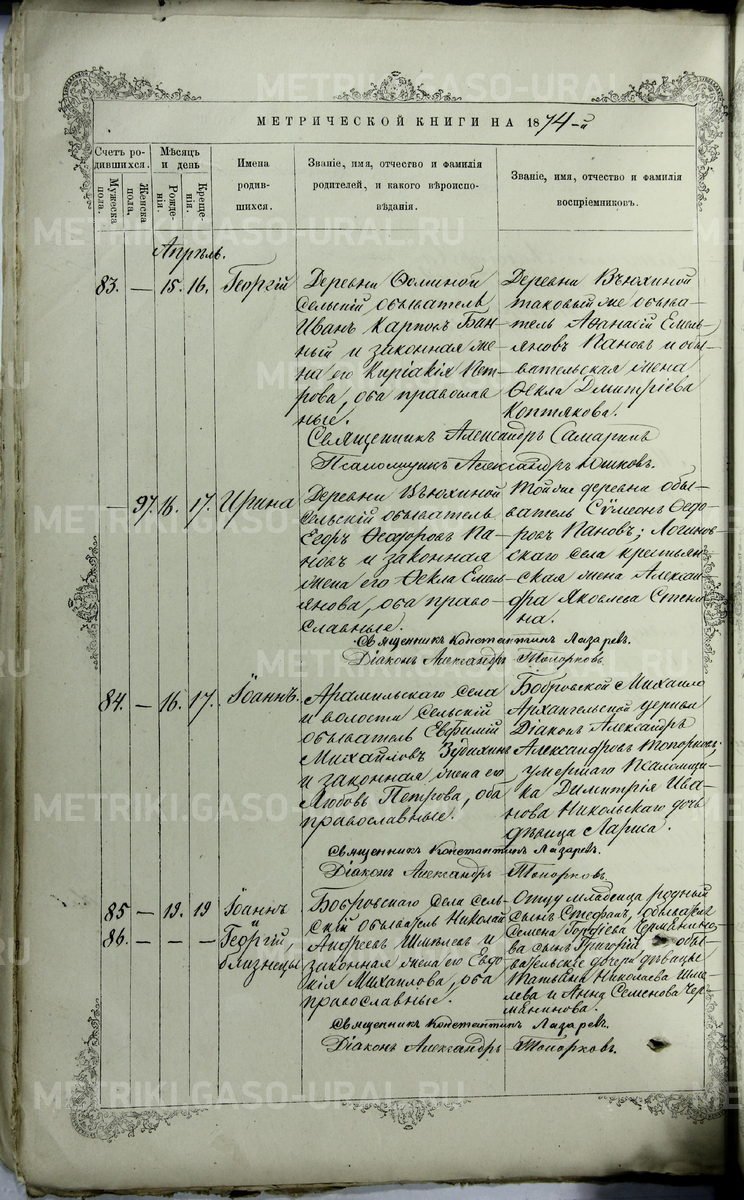 МЕТРИЧЕСКОЙ КНИГИ НА 1874-й
Счетъ ро-
дившихся.
Мужеска
пола.
Женска
пола.
Мѣсяцъ
и день
Рожде-
нія.
Креще-
нія.
Имена
родив-
шихся.
Званіе, имя, отчество и фамилія
родителей, и какого вѣроиспо-
вѣданія.
Званіе, имя, отчество и фамилія
воспріемниковъ.
Апрѣль.
83. — 15. 16. Георгій
Деревни Ѳоминой
сельскій обыватель
Иванъ Карповъ Бан-
ный и законная же-
на его Киріакія Пет-
рова, оба православ
ные.
Деревни Вьюхиной
таковый же обыва-
тель Аѳанасій Емель-
яновъ Пановъ и обы-
вательская жена
Ѳекла Дмитріева
Коптякова.
Священникъ Александръ Самаринъ
Псаломщикъ Александръ Юшковъ.
— 97. 16. 17. Ирина
Деревни Вьюхиной
сельскій обыватель
Егоръ Ѳеодоровъ Па-
новъ и законная
жена его Ѳекла Емель-
янова, оба право-
славные.
Той же деревни обы-
ватель Сѵмеонъ Ѳедо-
ровъ Пановъ; Логинов-
скаго села крестьян-
ская жена Алексан-
дра Яковлева Степи-
на.
Священникъ Константинъ Лазаревъ.
Діаконъ Александръ Топорковъ.
84. — 16. 17. Іоаннъ.
Арамильскаго села
и волости сельскій
обыватель Евфимій
Михайловъ Зудихинъ
и законная жена его
Любовь Петрова, оба
православные.
Бобровской Михаило
Архангельской церкви
Діаконъ Александръ
Александровъ Топорковъ;
умершаго Псаломщи-
ка Димитрія Ива-
нова Никольскаго дочь
дѣвица Лариса.
Священникъ Константинъ Лазаревъ.
Діаконъ Александръ Топорковъ.
85 — 19. 19 Іоаннъ
и
86. — — — Георгій,
близнецы
Бобровскаго села сель-
скій обыватель Николай
Андреевъ Шмелев и
законная жена его Евдо-
кія Михайлова, оба
православные.
Отцу младенца родный
сынъ Стефанъ, обывателя
Семена Гордѣева Чермяни-
ва сынъ Григорій и обы-
вательскіе дочери дѣвицы
Татьяна Николаева Шме-
лева и Анна Семенова Чер-
мянинова.
Священникъ Константинъ Лазаревъ.
Діаконъ Александръ Топорковъ.
METRIKI.GASO-URAL.RU